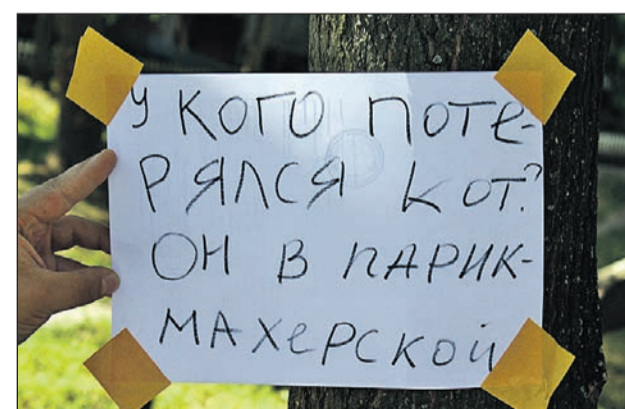 У КОГО ПОТЕ-
РЯЛСЯ КОТ?
ОН В ПАРИК-
МАХЕРСКОЙ